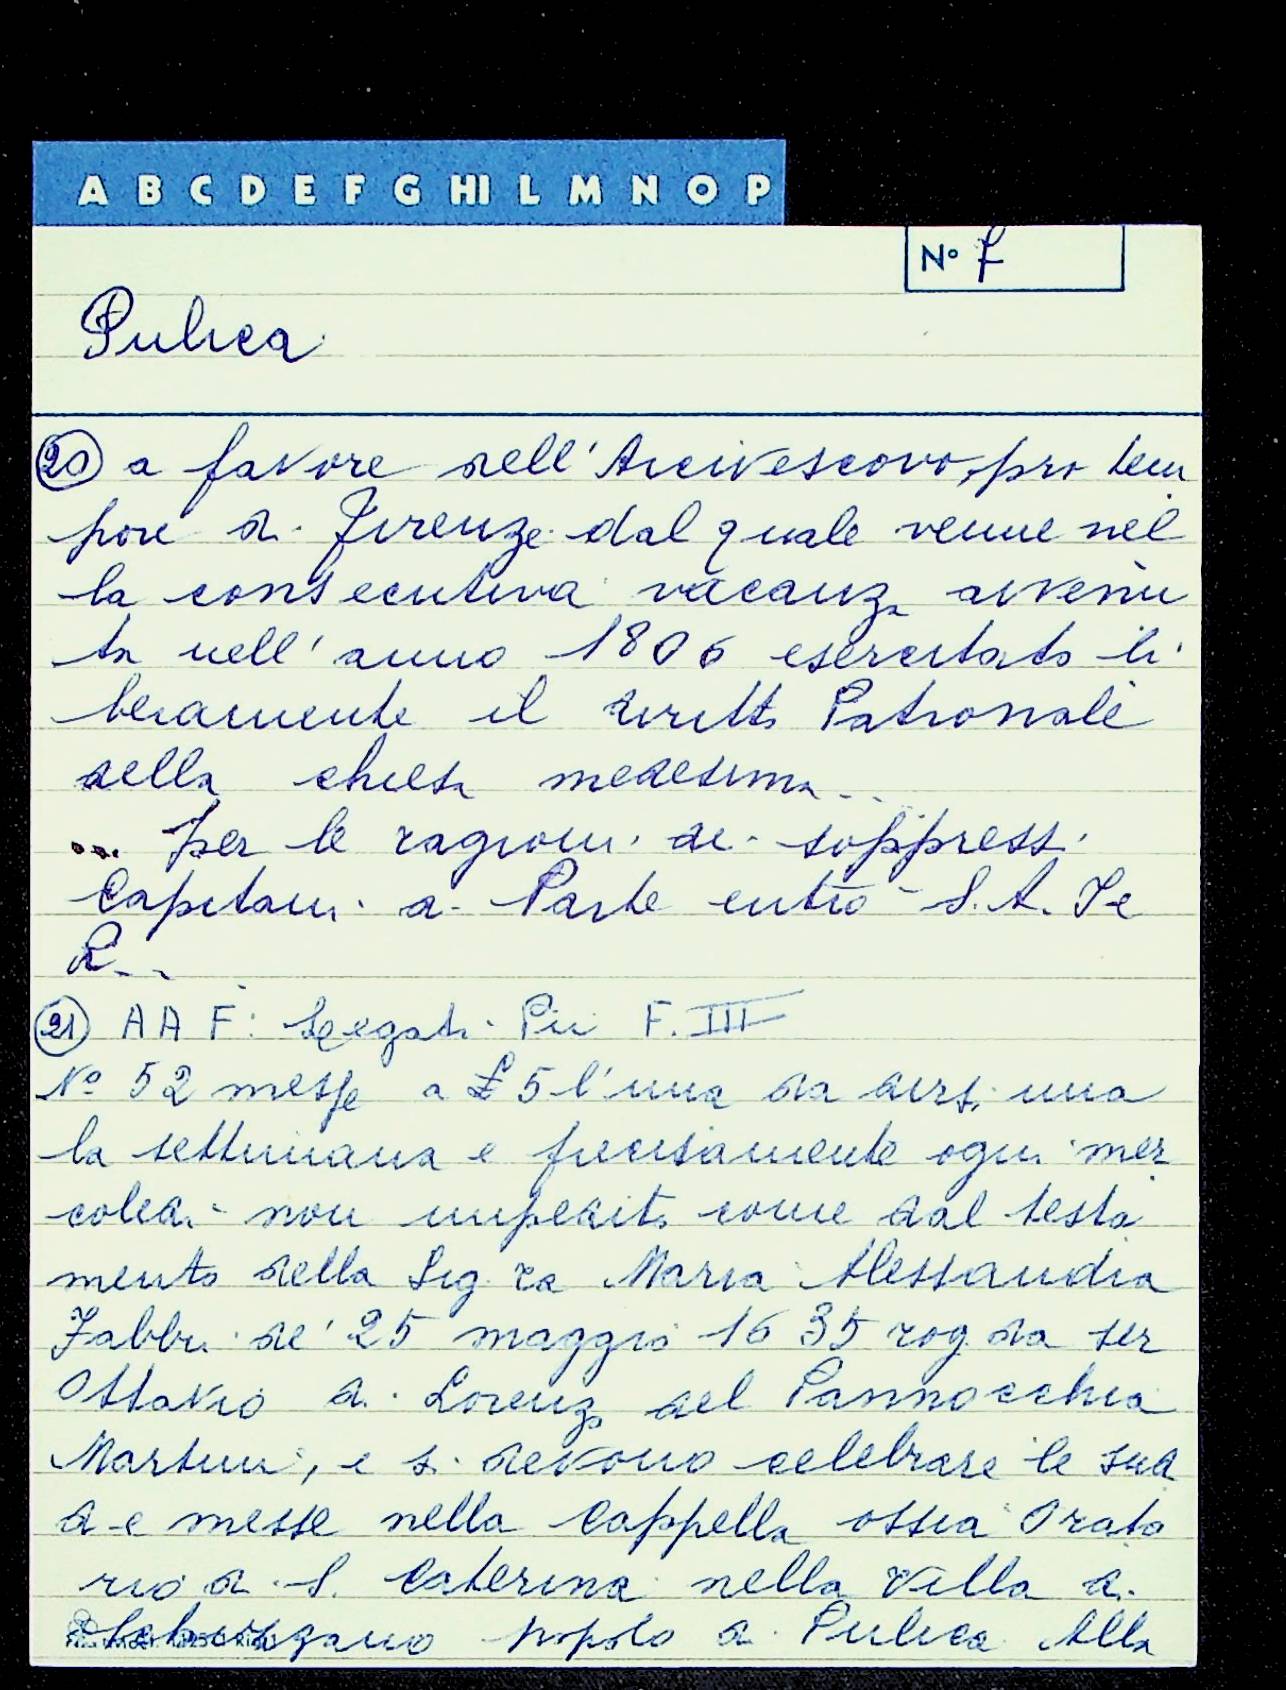 A B C D E F G HI L M N O P
N° 7
Pulica
20 a favore dell'Arcivescovo pro tem
pore di Firenze dal quale venne nel
la consecutiva vacanza avvenu
ta nell'anno 1806 esercitato li
beramente il diritto Patronale
della chiesa medesima...
... per le ragioni dei soppressi
Capitani di Parte entrò S.A. Se
R...
21 AAF: Legati Pii F. III
N° 52 messe a £ 5 l'una da dirsi una
la settimana e precisamente ogni mer
coledi non impedito come dal testa
mento della Sig.ra Maria Alessandra
Fabbri de' 25 maggio 1635 rog. da ser
Ottavio di Lorenzo del Pannocchia
Martini, e si devono celebrare le sud
d-e messe nella Cappella ossia Orato
rio di S. Caterina nella Villa di
popolo di Pulica Alla